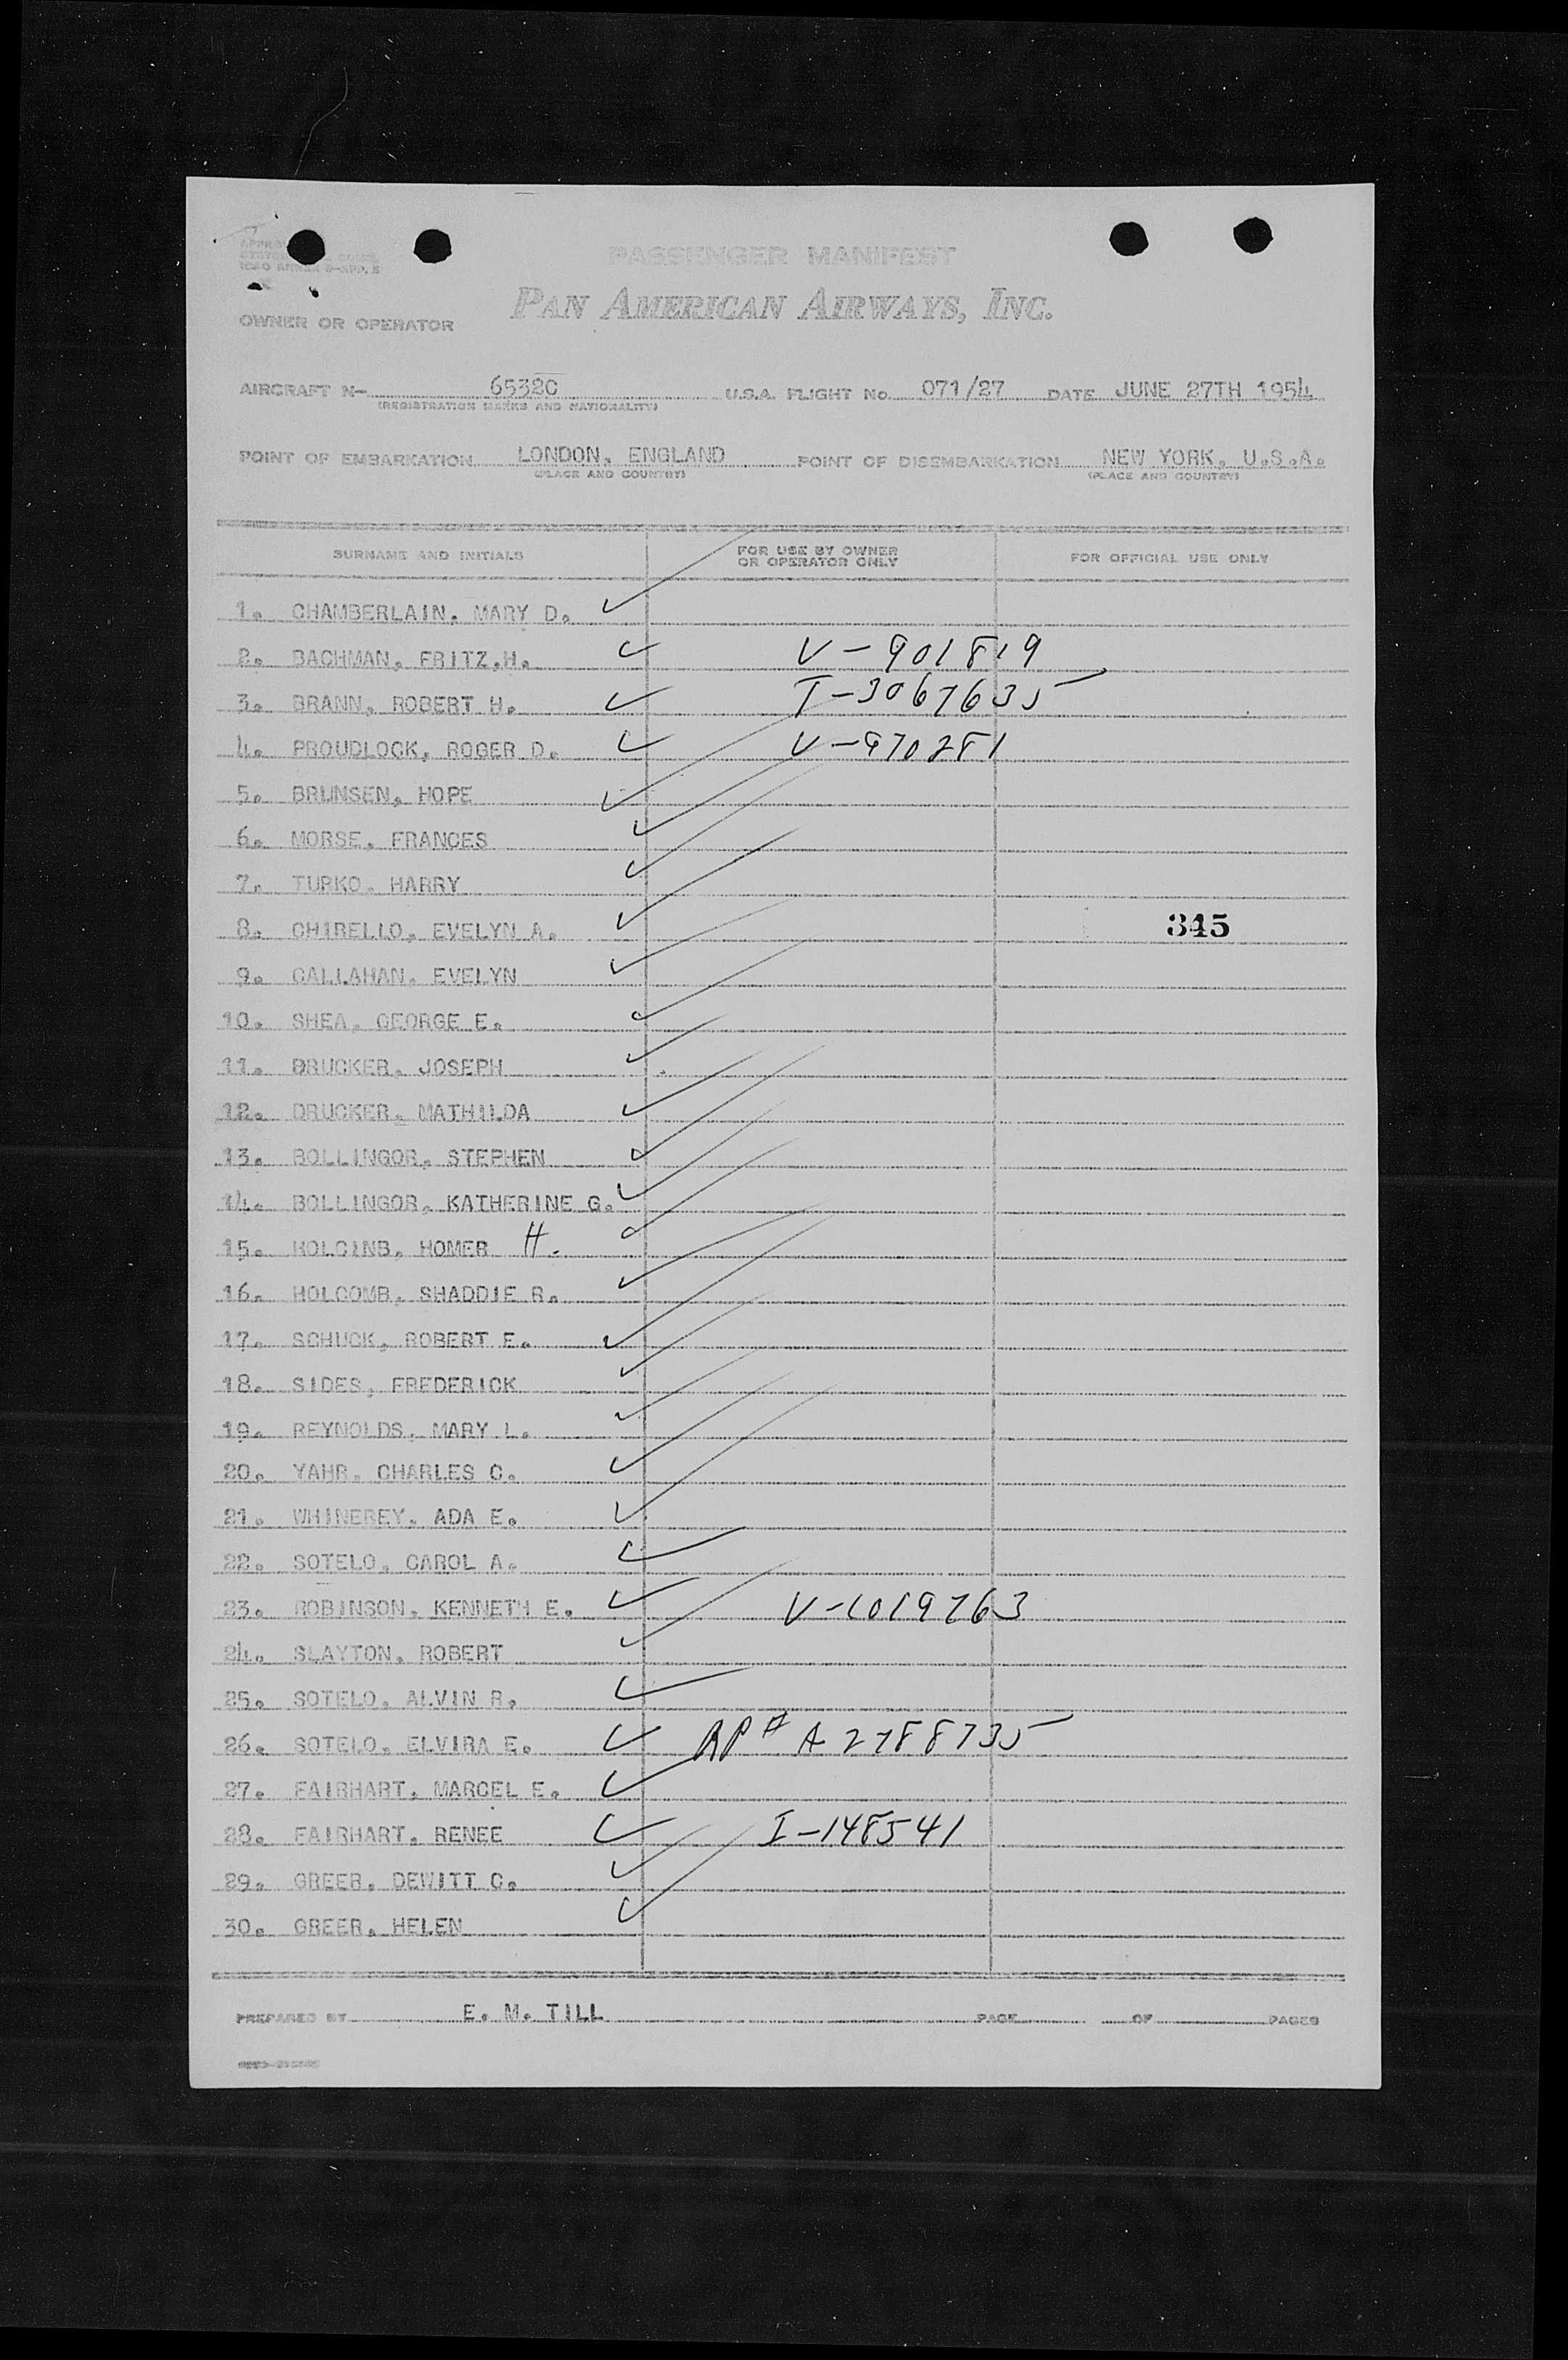 PASSENGER MANIFEST
PAN AMERICAN AIRWAYS, INC.
OWNER OR OPERATOR
AIRCRAFT N- 6532C U.S.A. FLIGHT No. 071/27 DATE JUNE 27TH 1954
(REGISTRATION MARKS AND NATIONALITY)
POINT OF EMBARKATION LONDON, ENGLAND POINT OF DISEMBARKATION NEW YORK, U.S.A.
(PLACE AND COUNTRY) (PLACE AND COUNTRY)
SURNAME AND INITIALS FOR USE BY OWNER OR OPERATOR ONLY FOR OFFICIAL USE ONLY
1. CHAMBERLAIN, MARY D.
2. BACHMAN, FRITZ,H. V-901819
3. BRANN, ROBERT H. T-3067635
4. PROUDLOCK, ROGER D. V-970281
5. BRUNSEN, HOPE
6. MORSE, FRANCES
7. TURKO, HARRY
8. CHIRELLO, EVELYN A. 345
9. CALLAHAN, EVELYN
10. SHEA, GEORGE E.
11. DRUCKER, JOSEPH
12. DRUCKER, MATHILDA
13. BOLLINGOR, STEPHEN
14. BOLLINGOR, KATHERINE G.
15. HOLCINB, HOMER H.
16. HOLCOMB, SHADDIE R.
17. SCHUCK, ROBERT E.
18. SIDES, FREDERICK
19. REYNOLDS, MARY L.
20. YAHR, CHARLES C.
21. WHINEREY, ADA E.
22. SOTELO, CAROL A.
23. ROBINSON, KENNETH E. V-1019763
24. SLAYTON, ROBERT
25. SOTELO, ALVIN R.
26. SOTELO, ELVIRA E. RP# A 2788735
27. FAIRHART, MARCEL E.
28. FAIRHART, RENEE I-148541
29. GREER, DEWITT C.
30. GREER, HELEN
PREPARED BY E. M. TILL PAGE OF PAGES